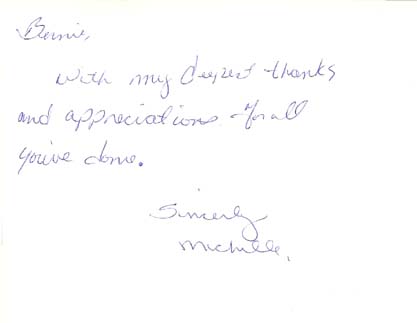 Bernie,
With my deepest thanks
and appreciations for all
you've done.
Sincerely
Michelle.